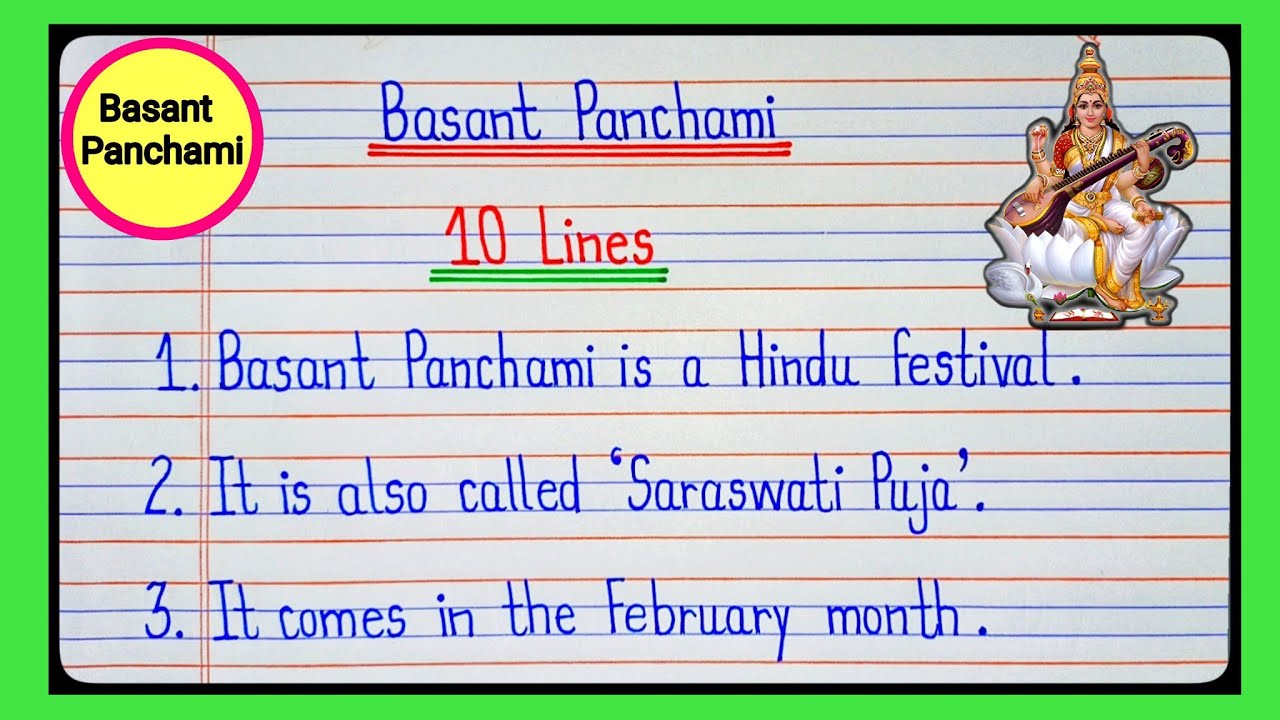 Basant
Panchami
Basant Panchami
10 Lines
1. Basant Panchami is a Hindu festival.
2. It is also called ‘Saraswati Puja’.
3. It comes in the February month.